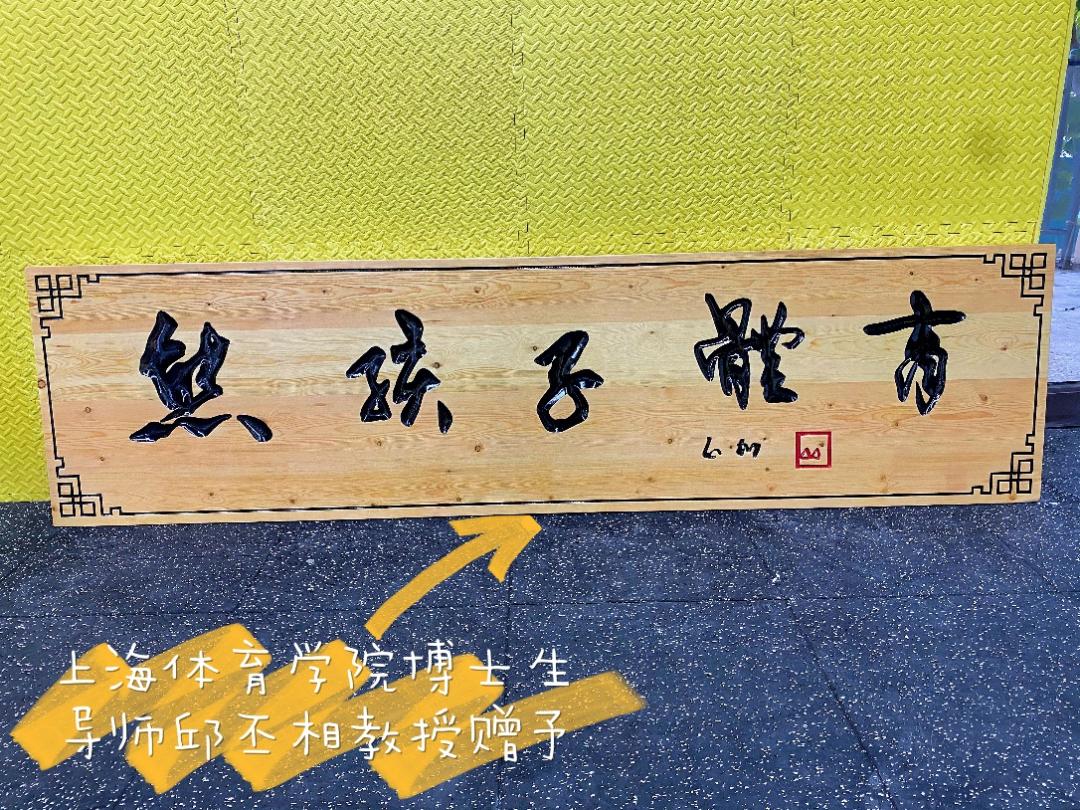 熊孩子體育
上海体育学院博士生
导师邱丕相教授赠予